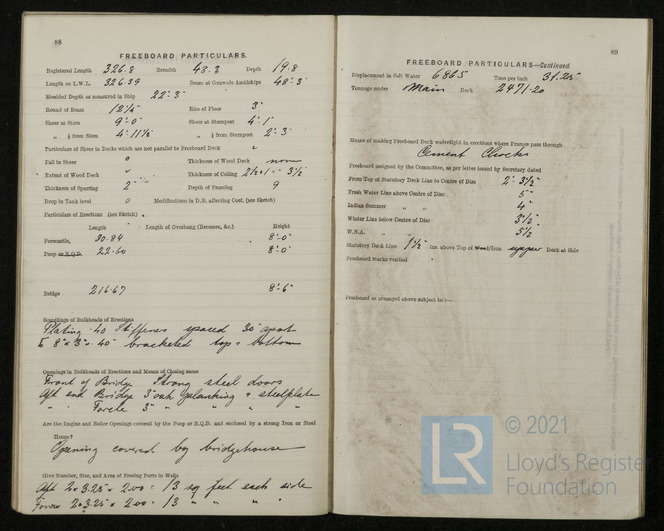 88
FREEBOARD PARTICULARS.
Registered Length 326.8 Breadth 48.2 Depth 19.8
Length on L.W.L. 326.39 Beam at Gunwale Amidships 48'.3"
Moulded Depth as measured in Ship 22'.3"
Round of Beam 12½" Rise of Floor 3"
Sheer at Stem 9'.0" Sheer at Sternpost 4'.1"
„ ⅛ from Stem 4'.11½ „ ⅛ from Sternpost 2'.3"
Particulars of Sheer in Decks which are not parallel to Freeboard Deck
Fall in Sheer 0 Thickness of Wood Deck none
Extent of Wood Deck Thickness of Ceiling 2½+1 = 3½
Thickness of Sparring 2" Depth of Framing 9
Drop in Tank level 0 Modifications in D.B. affecting Coef. (see Sketch)
Particulars of Erections (see Sketch)
Length Length of Overhang (Recesses, &c.) Height
Forecastle, 30.84 8'.0"
Poop or R.Q.D. 22.60 8'.0"
Bridge 216.67 8'.6"
Scantlings of Bulkheads of Erections
Plating .40 Stiffeners spaced 30" apart
8" x 3" x .40 bracketed top & bottom
Openings in Bulkheads of Erections and Means of Closing same
Front of Bridge Strong steel doors
Aft end Bridge 3" oak planking & steelplate
" " Forecle 3" " " " "
Are the Engine and Boiler Openings covered by the Poop or R.Q.D. and enclosed by a strong Iron or Steel
House?
Opening covered by bridgehouse
Give Number, Size, and Area of Freeing Ports in Wells
Aft 2 x 3.25 x 2.00 = 13 sq feet each side
Forwd 2 x 3.25 x 2.00 = 13 " " " "
89
FREEBOARD PARTICULARS—Continued.
Displacement in Salt Water 6865 Tons per Inch 31.25
Tonnage under Main Deck 2471.20
Means of making Freeboard Deck watertight in erections where Frames pass through
Cement Chocks
Freeboard assigned by the Committee, as per letter issued by Secretary dated
From Top of Statutory Deck Line to Centre of Disc 2'.3½"
Fresh Water Line above Centre of Disc 5"
Indian Summer „ „ 4"
Winter Line below Centre of Disc 3½"
W.N.A. „ „ 5½
Statutory Deck Line 1½" ins. above Top of Wood/Iron upper Deck at Side
Freeboard marks verified
Freeboard as arranged above subject to:—
© 2021
LR
Lloyd's Register
Foundation